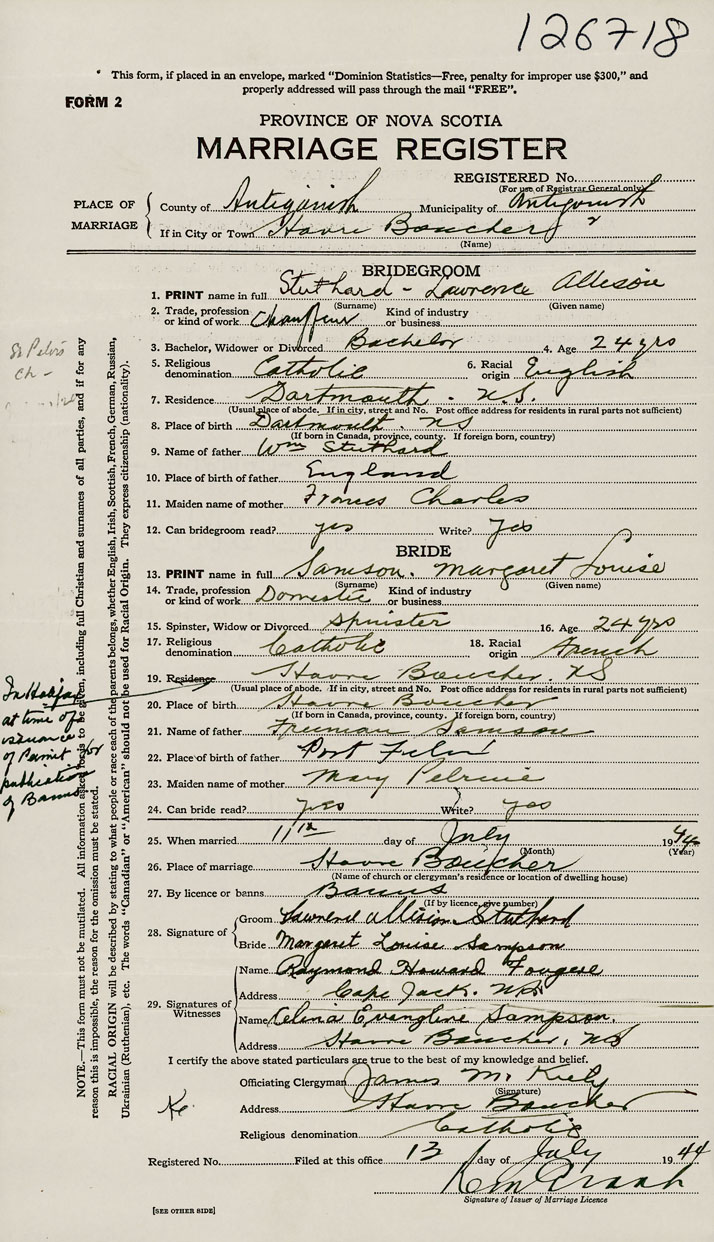 126718
* This form, if placed in an envelope, marked "Dominion Statistics—Free, penalty for improper use $300," and
properly addressed will pass through the mail "FREE".
FORM 2
PROVINCE OF NOVA SCOTIA
MARRIAGE REGISTER
REGISTERED No.
(For use of Registrar General only)
PLACE OF MARRIAGE
County of Antigonish Municipality of Antigonish
If in City or Town Havre Boucher
(Name)
BRIDEGROOM
1. PRINT name in full Stuthard - Lawrence Allison
(Surname) (Given name)
2. Trade, profession or kind of work Chauffeur Kind of industry or business
3. Bachelor, Widower or Divorced Bachelor 4. Age 24 yrs
5. Religious denomination Catholic 6. Racial origin English
7. Residence Dartmouth - N.S.
(Usual place of abode. If in city, street and No. Post office address for residents in rural parts not sufficient)
8. Place of birth Dartmouth. NS
(If born in Canada, province, county. If foreign born, country)
9. Name of father Wm Stuthard
10. Place of birth of father England
11. Maiden name of mother Frances Charles
12. Can bridegroom read? yes Write? Yes
BRIDE
13. PRINT name in full Samson. Margaret Louise
(Surname) (Given name)
14. Trade, profession or kind of work Domestic Kind of industry or business
15. Spinster, Widow or Divorced Spinster 16. Age 24 yrs
17. Religious denomination Catholic 18. Racial origin French
19. Residence Havre Boucher. NS
(Usual place of abode. If in city, street and No. Post office address for residents in rural parts not sufficient)
20. Place of birth Havre Boucher
(If born in Canada, province, county. If foreign born, country)
21. Name of father Freeman Samson
22. Place of birth of father Port Felix
23. Maiden name of mother Mary Pelrine
24. Can bride read? yes Write? yes
25. When married 11th day of July 1944
(Month) (Year)
26. Place of marriage Havre Boucher
(Name of church or clergyman's residence or location of dwelling house)
27. By licence or banns Banns
(If by licence, give number)
28. Signature of
Groom Lawrence Allison Stuthard
Bride Margaret Louise Sampson
29. Signatures of Witnesses
Name Raymond Howard Fougere
Address Cape Jack. NS
Name Celina Evangline Sampson.
Address Havre Boucher, NS
I certify the above stated particulars are true to the best of my knowledge and belief.
Officiating Clergyman James M. Kiely
(Signature)
Address Havre Boucher
Religious denomination Catholic
Registered No. Filed at this office 13 day of July 1944
Signature of Issuer of Marriage Licence
[SEE OTHER SIDE]
St Peter's
Ch -
In Halifax
at time of
issuance
of Permit for
publication
of Banns
NOTE.—This form must not be mutilated. All information asked for is to be given, including full Christian and surnames of all parties, and if for any
reason this is impossible, the reason for the omission must be stated.
RACIAL ORIGIN will be described by stating to what people or race each of the parents belongs, whether English, Irish, Scottish, French, German, Russian,
Ukrainian (Ruthenian), etc. The words "Canadian" or "American" should not be used for Racial Origin. They express citizenship (nationality).